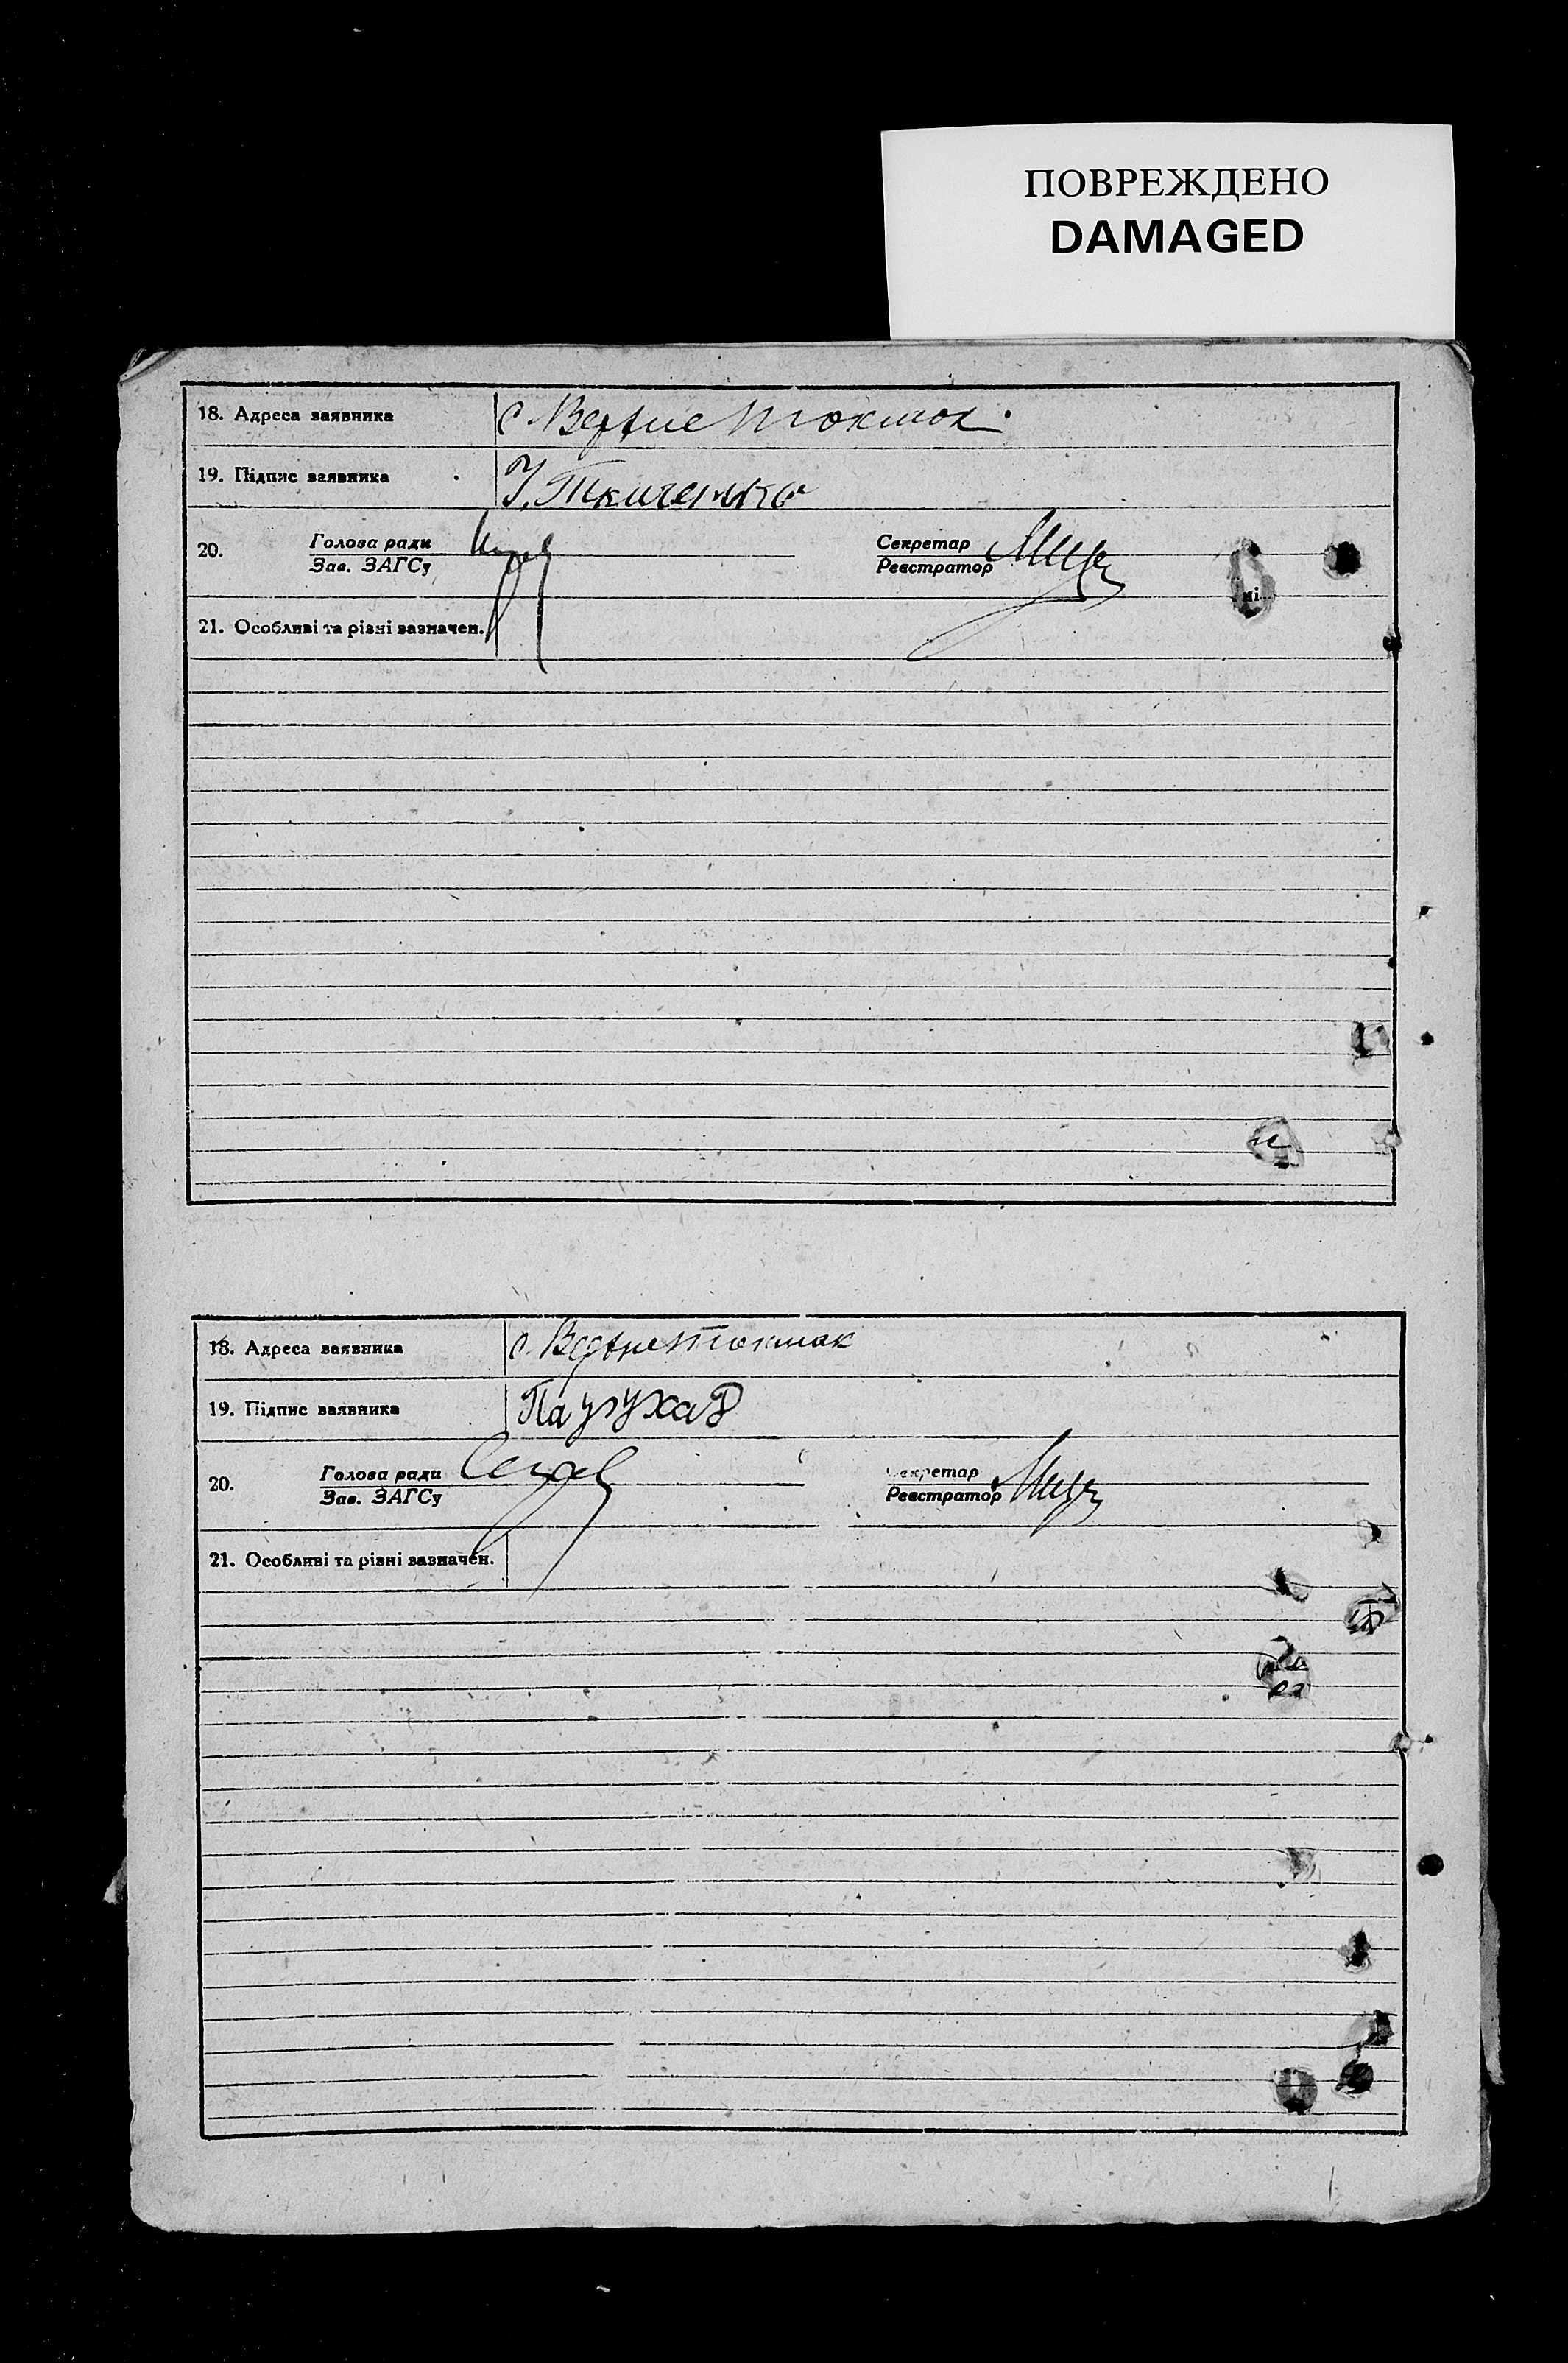 ПОВРЕЖДЕНО
DAMAGED
18. Адреса заявника с. Верхне Токмак
19. Підпис заявника У. Ткиченко
20. Голова ради Секретар
Зав. ЗАГСу Реєстратор
21. Особливі та різні зазначен.
18. Адреса заявника с. Верхне Токмак
19. Підпис заявника
20. Голова ради Секретар
Зав. ЗАГСу Реєстратор
21. Особливі та різні зазначен.